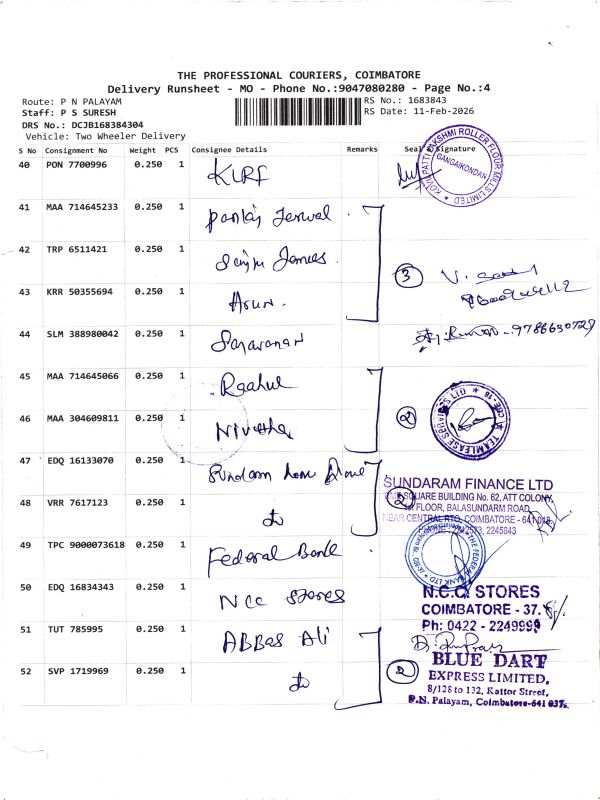 THE PROFESSIONAL COURIERS, COIMBATORE
Delivery Runsheet - MO - Phone No.:9047080280 - Page No.:4
Route: P N PALAYAM
RS No.: 1683843
Staff: P S SURESH
RS Date: 11-Feb-2026
DRS No.: DCJB168384304
Vehicle: Two Wheeler Delivery
S No Consignment No Weight PCS Consignee Details Remarks Seal & Signature
40 PON 7700996 0.250 1 KLRF
KOVILPATTI LAKSHMI ROLLER FLOUR MILLS LIMITED
GANGAIKONDAN
41 MAA 714645233 0.250 1
42 TRP 6511421 0.250 1
3
43 KRR 50355694 0.250 1 Arun.
44 SLM 388980042 0.250 1 Saravanan
9786630729
45 MAA 714645066 0.250 1 Raahul
46 MAA 304609811 0.250 1 Nivetha
2
TEAMLEASE SERVICES LTD
CBE-18
47 EDQ 16133070 0.250 1 Sundaram home
SUNDARAM FINANCE LTD
SQUARE BUILDING No. 62, ATT COLONY,
FLOOR, BALASUNDARM ROAD,
NEAR CENTRAL RTO, COIMBATORE - 641 018.
2245843
48 VRR 7617123 0.250 1 do
2
49 TPC 9000073618 0.250 1 Federal Bank
THE FEDERAL BANK LTD
50 EDQ 16834343 0.250 1 NCC Stores
N.C.C. STORES
COIMBATORE - 37.
Ph: 0422 - 2249999
51 TUT 785995 0.250 1 ABBAS Ali
52 SVP 1719969 0.250 1 do
2
BLUE DART
EXPRESS LIMITED,
8/128 to 132, Kattor Street,
P.N. Palayam, Coimbatore-641 037.